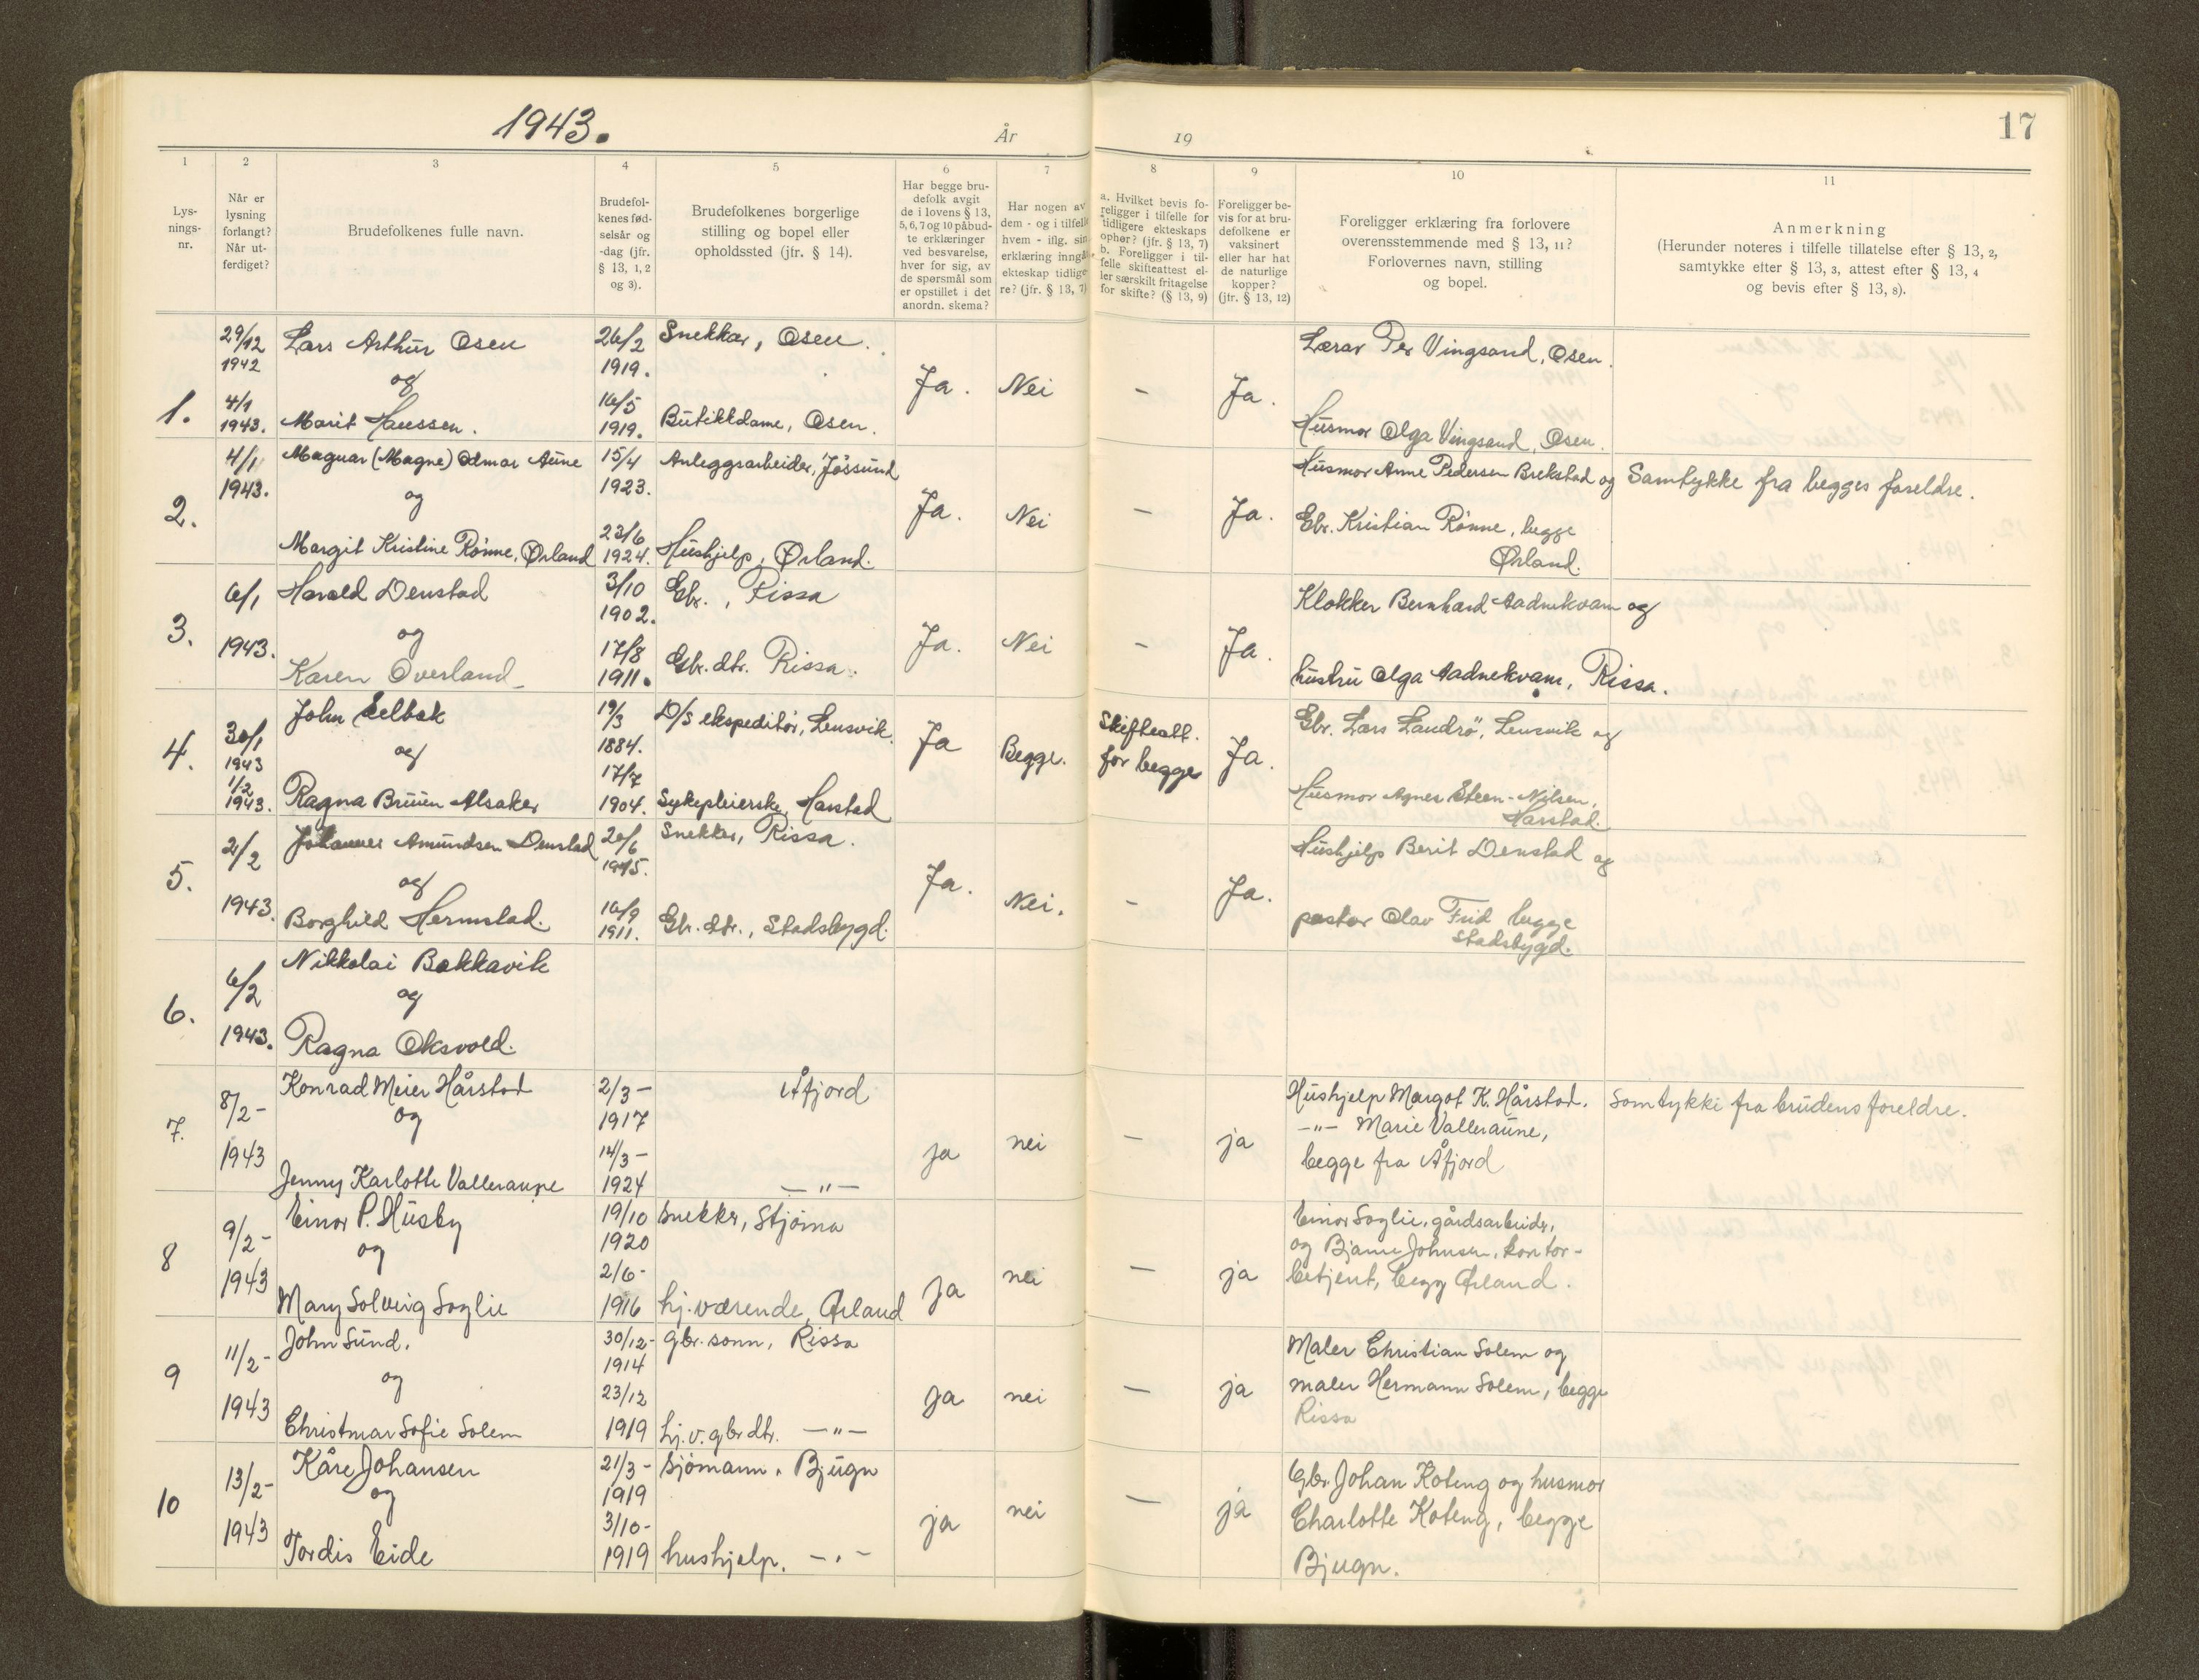 1943.
År
19
17
1
2
3
4
5
6
7
8
9
10
11
Lys-
nings-
nr.
Når er
lysning
forlangt?
Når ut-
ferdiget?
Brudefolkenes fulle navn.
Brudefol-
kenes fød-
selsår og
-dag (jfr.
§ 13, 1, 2
og 3).
Brudefolkenes borgerlige
stilling og bopel eller
opholdssted (jfr. § 14).
Har begge bru-
defolk avgit
de i lovens § 13,
5, 6, 7 og 10 påbud-
te erklæringer
ved besvarelse,
hver for sig, av
de spørsmål som
er opstillet i det
anordn. skema?
Har nogen av
dem - og i tilfelle
hvem - iflg. sin
erklæring inngått
ekteskap tidlige-
re? (jfr. § 13, 7)
a. Hvilket bevis fo-
religger i tilfelle for
tidligere ekteskaps
ophør? (jfr. § 13, 7)
b. Foreligger i til-
felle skifteattest el-
ler særskilt fritagelse
for skifte? (§ 13, 9)
Foreligger be-
vis for at bru-
defolkene er
vaksinert
eller har hat
de naturlige
kopper?
(jfr. § 13, 12)
Foreligger erklæring fra forlovere
overensstemmende med § 13, 11?
Forlovernes navn, stilling
og bopel.
Anmerkning
(Herunder noteres i tilfelle tillatelse efter § 13, 2,
samtykke efter § 13, 3, attest efter § 13, 4
og bevis efter § 13, 8).
1.
29/12
1942
4/1
1943.
Lars Arthur Osen
og
Marit Hanssen.
26/2
1919.
16/5
1919.
Snekkar, Osen.
Butikkdame, Osen.
Ja.
Nei
-
Ja.
Lærar Per Vingsand, Osen.
Husmor Olga Vingsand, Osen.
2.
4/1
1943.
Magnar (Magne) Odmar Aune
og
Margit Kristine Rønne, Ørland
15/4
1923.
23/6
1924.
Anleggsarbeider, Jøssund
Hushjelp, Ørland.
Ja.
Nei
-
Ja.
Husmor Anne Pedersen Brekstad og
Gbr. Kristian Rønne, begge
Ørland.
Samtykke fra begges foreldre.
3.
6/1
1943.
Harald Denstad
og
Karen Overland
3/10
1902.
17/8
1911.
Gbr., Rissa
Gbr. dtr. Rissa.
Ja.
Nei
-
Ja.
Klokker Bernhard Aadnekvam og
hustru Olga Aadnekvam, Rissa.
4.
30/1
1943
1/2
1943.
John Selbek
og
Ragna Bruun Alsaker
19/3
1884.
17/7
1904.
D/S ekspeditør, Lensvik.
Sykepleierske, Harstad
Ja
Begge.
Skifteatt.
for begge
Ja.
Gbr. Lars Landrø, Lensvik og
Husmor Agnes Steen-Nilsen,
Harstad.
5.
2/2
1943.
Johannes Amundsen Denstad
og
Borghild Hermstad.
20/6
1915.
16/9
1911.
Snekker, Rissa.
Gbr. dtr., Stadsbygd.
Ja.
Nei.
-
Ja.
Hushjelp Berit Denstad og
pastor Olav Frid begge
Stadsbygd.
6.
6/2
1943.
Nikkolai Bakkavik
og
Ragna Oksvold.
7.
8/2-
1943
Konrad Meier Hårstad
og
Jenny Karlotte Valleraune
2/3-
1917
14/3-
1924
Åfjord
—"—
ja
nei
-
ja
Hushjelp Margot K. Hårstad.
-"- Marie Valleraune,
begge fra Åfjord
Samtykki fra brudens foreldre.
8
9/2-
1943
Einar P. Husby
og
Mary Solveig Soglie
19/10
1920
2/6-
1916
snekker, Stjørna
hj. værende, Ørland
ja
nei
-
ja
Einar Soglie, gårdsarbeider,
og Bjarne Johnsen, kontor-
betjent, begg Ørland.
9
11/2-
1943
John Sund.
og
Christmar Sofie Solem
30/12-
1914
23/12
1919
gbr. sønn, Rissa
hj. v. gbr dtr. —"—
ja
nei
-
ja
Maler Christian Solem og
maler Hermann Solem, begge
Rissa
10
13/2-
1943
Kåre Johansen
og
Tordis Eide
21/3-
1919
3/10-
1919
sjømann, Bjugn
hushjelp. -"-
ja
nei
-
ja
Gbr. Johan Koteng og husmor
Charlotte Koteng, begge
Bjugn.